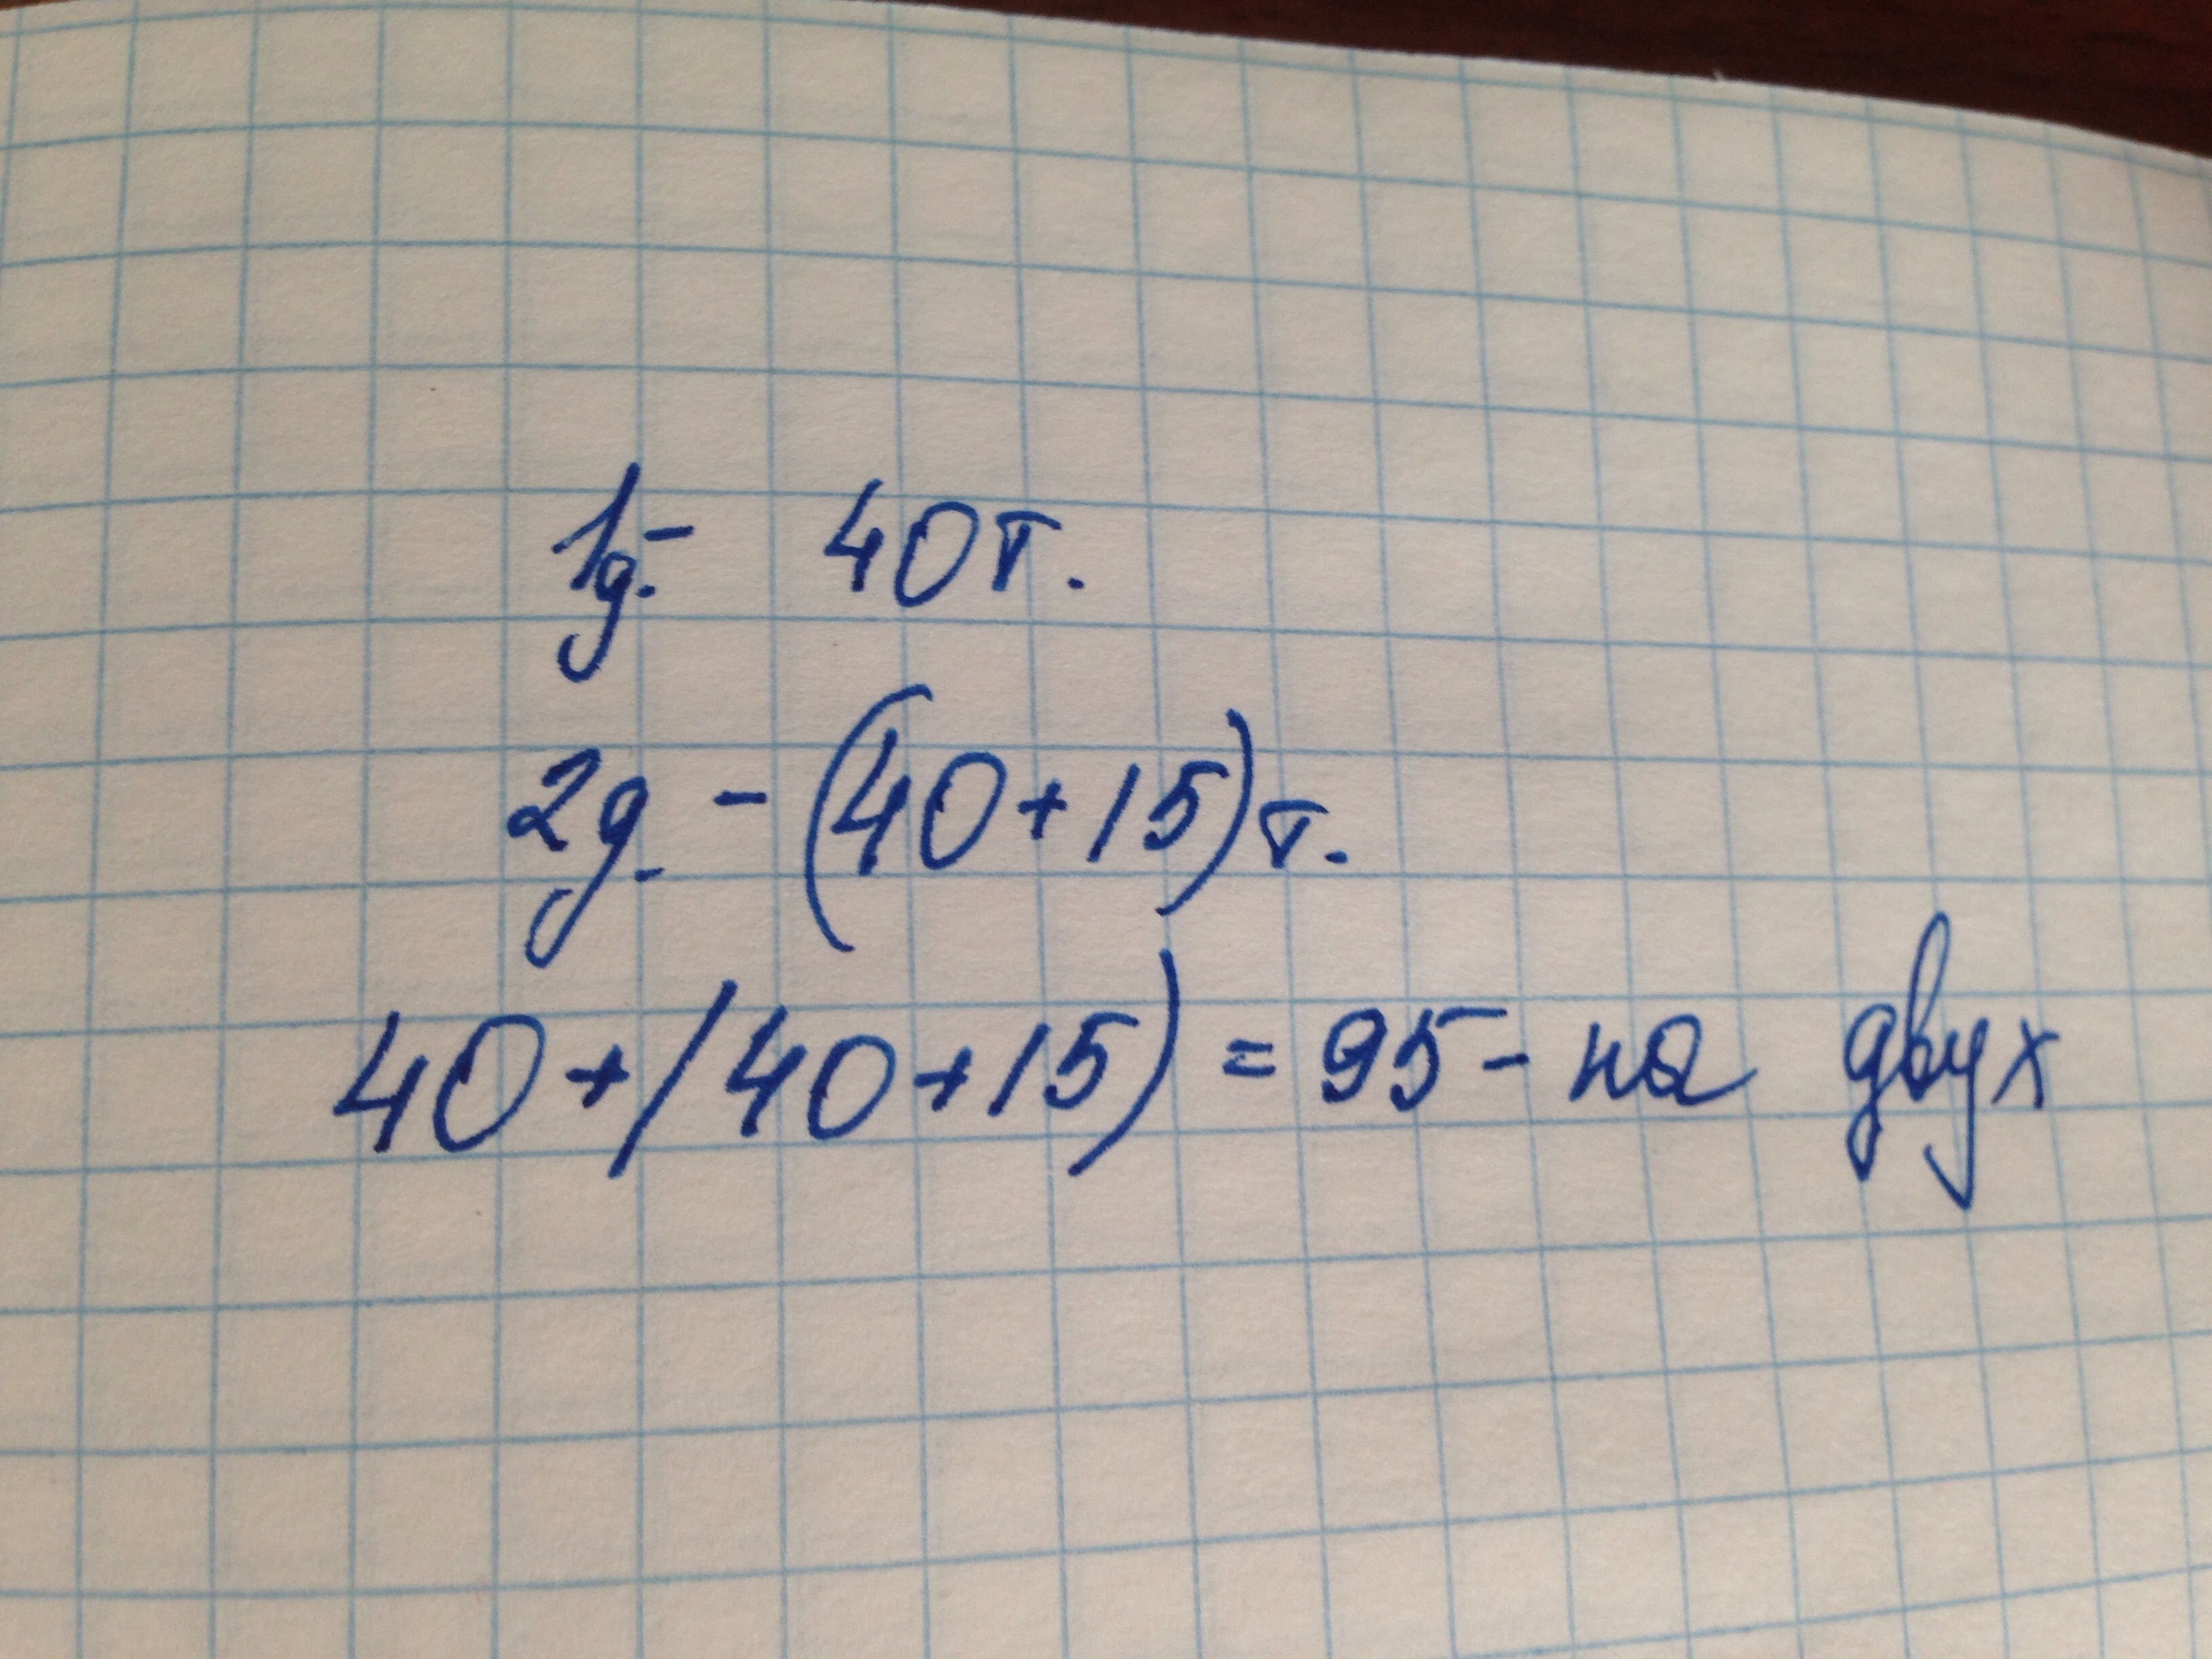 1д. - 40т.
2д. - (40+15)т.
40+(40+15) = 95 - на двух